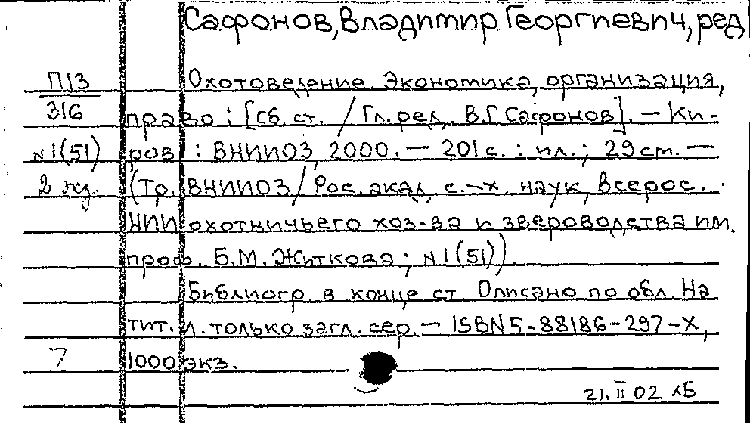 Сафонов, Владимир Георгиевич, ред
П13 Охотоведение Экономика, организация,
316 право : [Сб. ст. / Гл. ред. В.Г. Сафонов]. — Ки-
N1(51) ров : ВНИИОЗ, 2000. — 201 с. : ил. ; 29 см. —
2 (Тр. ВНИИОЗ / Рос. акад. с.-х. наук, Всерос.
НИИ охотничьего хоз-ва и звероводства им.
проф. Б.М. Житкова ; N1(51)).
Библиогр. в конце ст Описано по обл. На
тит. л. только загл. сер. — ISBN 5-88186-297-X,
7 1000 экз.
21.II 02